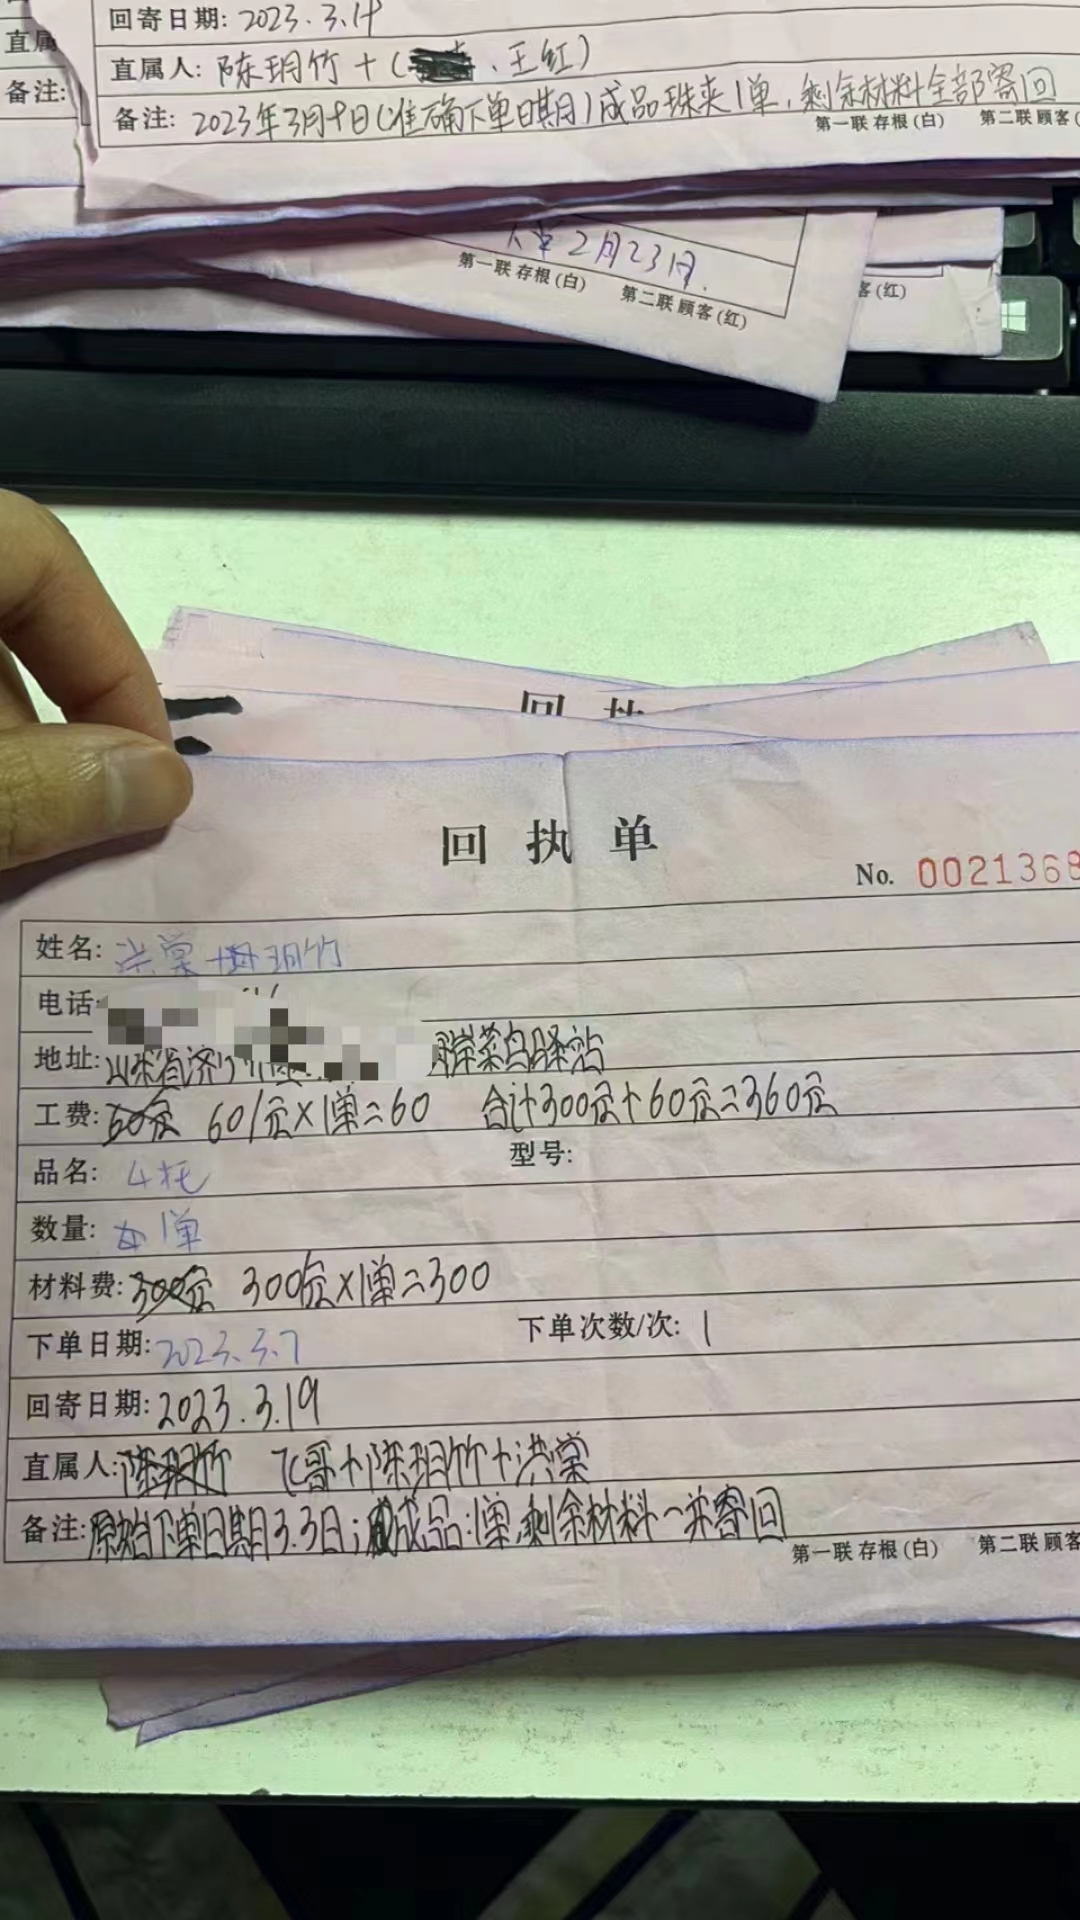 回寄日期: 2023.3.14
直属
直属人: 陈玥竹+( 、王红)
备注:
备注: 2023年3月10日(准确下单日期)成品珠夹1单,剩余材料全部寄回
第一联 存根(白) 第二联 顾客(
2月23日.
第一联 存根(白) 第二联 顾客(红)
客(红)
回 执
回 执 单
No. 0021368
姓名: 洪棠+陈玥竹
电话:
地址: 山东省济 菜鸟驿站
工费: 60元 60/元×1单=60 合计300元+60元=360元
品名: 4托 型号:
数量: 1单
材料费: 300元 300元×1单=300
下单日期: 2023.3.7 下单次数/次: 1
回寄日期: 2023.3.19
直属人: 陈玥竹 飞哥+陈玥竹+洪棠
备注: 原始下单日期3.3日; 成品:1单,剩余材料一并寄回
第一联 存根(白) 第二联 顾客